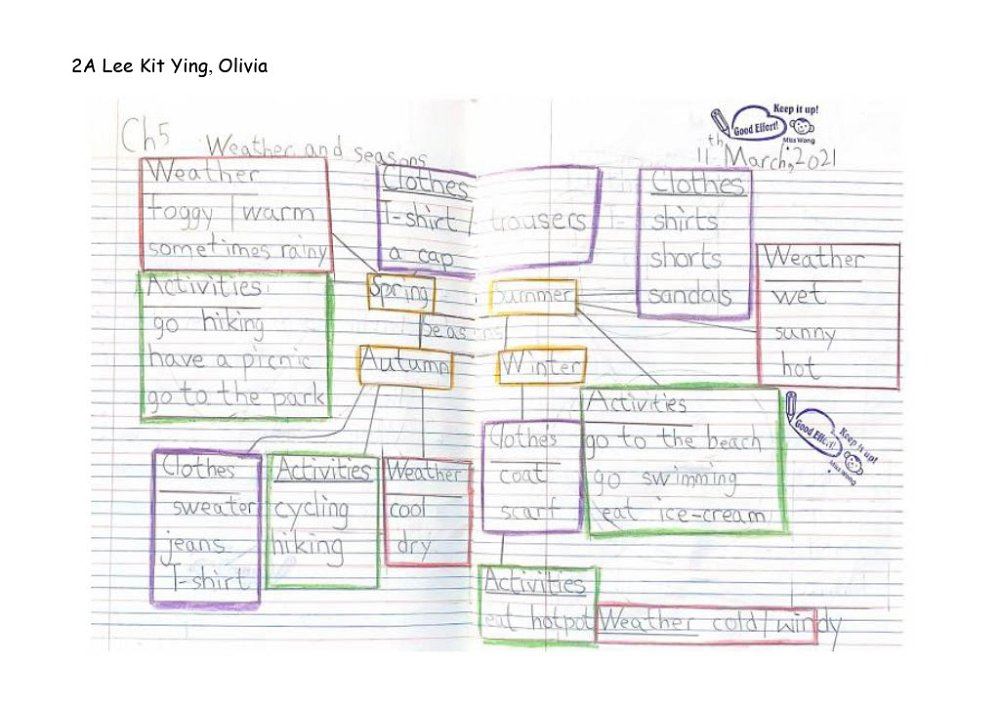 2A Lee Kit Ying, Olivia
Keep it up!
Good Effort!
Miss Wong
Ch5 Weather and seasons
11th March, 2021
Weather
foggy | warm
sometimes rainy
Clothes
T-shirt / trousers
a cap
Clothes
T-shirts
shorts
sandals
Weather
wet
sunny
hot
Activities
go hiking
have a picnic
go to the park
Spring
summer
Seasons
Autumn
Winter
Activities
go to the beach
go swimming
eat ice-cream
Good Effort!
Keep it up!
Miss Wong
Clothes
sweater
jeans
T-shirt
Activities
cycling
hiking
Weather
cool
dry
Clothes
coat
scarf
Activities
eat hotpot
Weather cold | windy